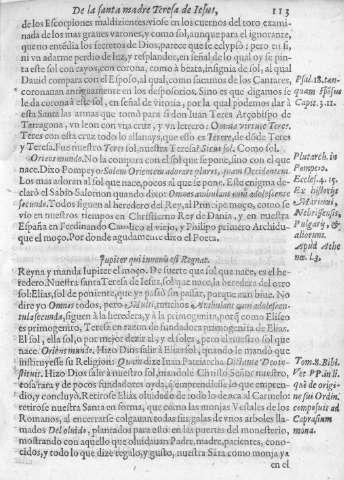 De la santa madre Teresa de Iesus, 113
de los Escorpiones maldizientes: viose en los cuernos del toro exami-
nada de los mas graues varones, y como sol, aunque para el ignorante,
que no entẽdia los secretos de Dios, parece que se eclypsò; pero en si,
ni vn adarme perdio de luz, y resplandor, en señal de lo qual oy se pin-
ta este sol con rayos, con corona, como à beata, insignia de sol, al qual
Dauid compara con el Esposo, al qual, como secuntur de los Cantares,
coronauan antiguamente en los desposorios. Sino es que digamos se
le da corona à este sol, en señal de vitoria, por la qual podemos dar à
esta Santa las armas que tomò para si don Iuan Teres Arçobispo de
Tarragona, vn leon con vna cruz, y vn letrero: Omnia vincit Teres.
Teres con esta cruz todo lo allanays, que esso es Terere, de dòde Teres
y Teresa. Fue nuestro Teres sol, nuestra Teresa? Sicut sol. Como sol.
Oriens mundo. No la compara con el sol que se pone, sino con el que
nace. Dixo Pompeyo: Solem Orientem adorare plures, quam Occidentem.
Los mas adoran al sol que nace, pocos al que se pone. Este enigma de-
clarò el Sabio Salomon quando dixo: Omnes ambulant cum adolescente
secundo. Todos siguen al heredero del Rey, al Principe moço, como se
vio en nuestros tiempos en Christierno Rey de Dania, y en nuestra
España en Ferdinando Catolico el viejo, y Philipo primero Archidu-
que el moço. Por donde agudamente dixo el Poeta.
Iupiter qui iuuenis est Regnat.
Reyna y manda Iupiter el moço. De suerte que sol que nace, es el he-
redero. Nuestra santa Teresa de Iesus, sol que nace, la heredera del otro
sol: Elias, sol de poniente, que ya passò sin passar, porque aun biue. No
dire yo Omnes todos, pero Multi, muchos Ambulant cum adolescen-
tula secunda, siguen à la heredera, y à la primogenita, porq̃ como Eliseo
es primogenito, Teresa en razon de fundadora primogenita de Elias.
El sol, ella sol, o por mejor dezir el, y el soles, pero el nuestro sol que
nace. Oriens mundo. Hizo Dios salir à Elias sol, quando le mandò que
instituyesse su Religion: Quam dixe Iuan Patriarcha Dictante Deo in-
stituit. Hizo Dios salir à nuestro sol, mandole Christo Señor nuestro,
cosa rara y de pocos fundadores oyda, q̃ emprendiesse lo que empren-
dio, y concluyò. Retirose Elias oluidado de todo lo de acà al Carmelo:
retirose nuestra Santa en forma, que como las monjas Vestales de los
Romanos, al encerrarse colgauan todas sus galas de vnos arboles lla-
mados Del oluido, plantados para esto en las puertas del monesterio,
mostrando con aquello que oluidauan Padre, madre, parientes, cono-
cidos, y todo lo que dize regalo, y gusto, nuestra Sãta como monja ya
en el
Psal. 18. tan-
quam spõsus
Capit. 3. 11.
Plutarch. in
Pompeio.
Eccles. 4. 15.
Ex historijs
Apud Athe
næ. l. 3.
Tom. 8. Bibl.
Vet PP. in li.
quẽ de origi-
ne sui Ordin.
composuit ad
Caprasium